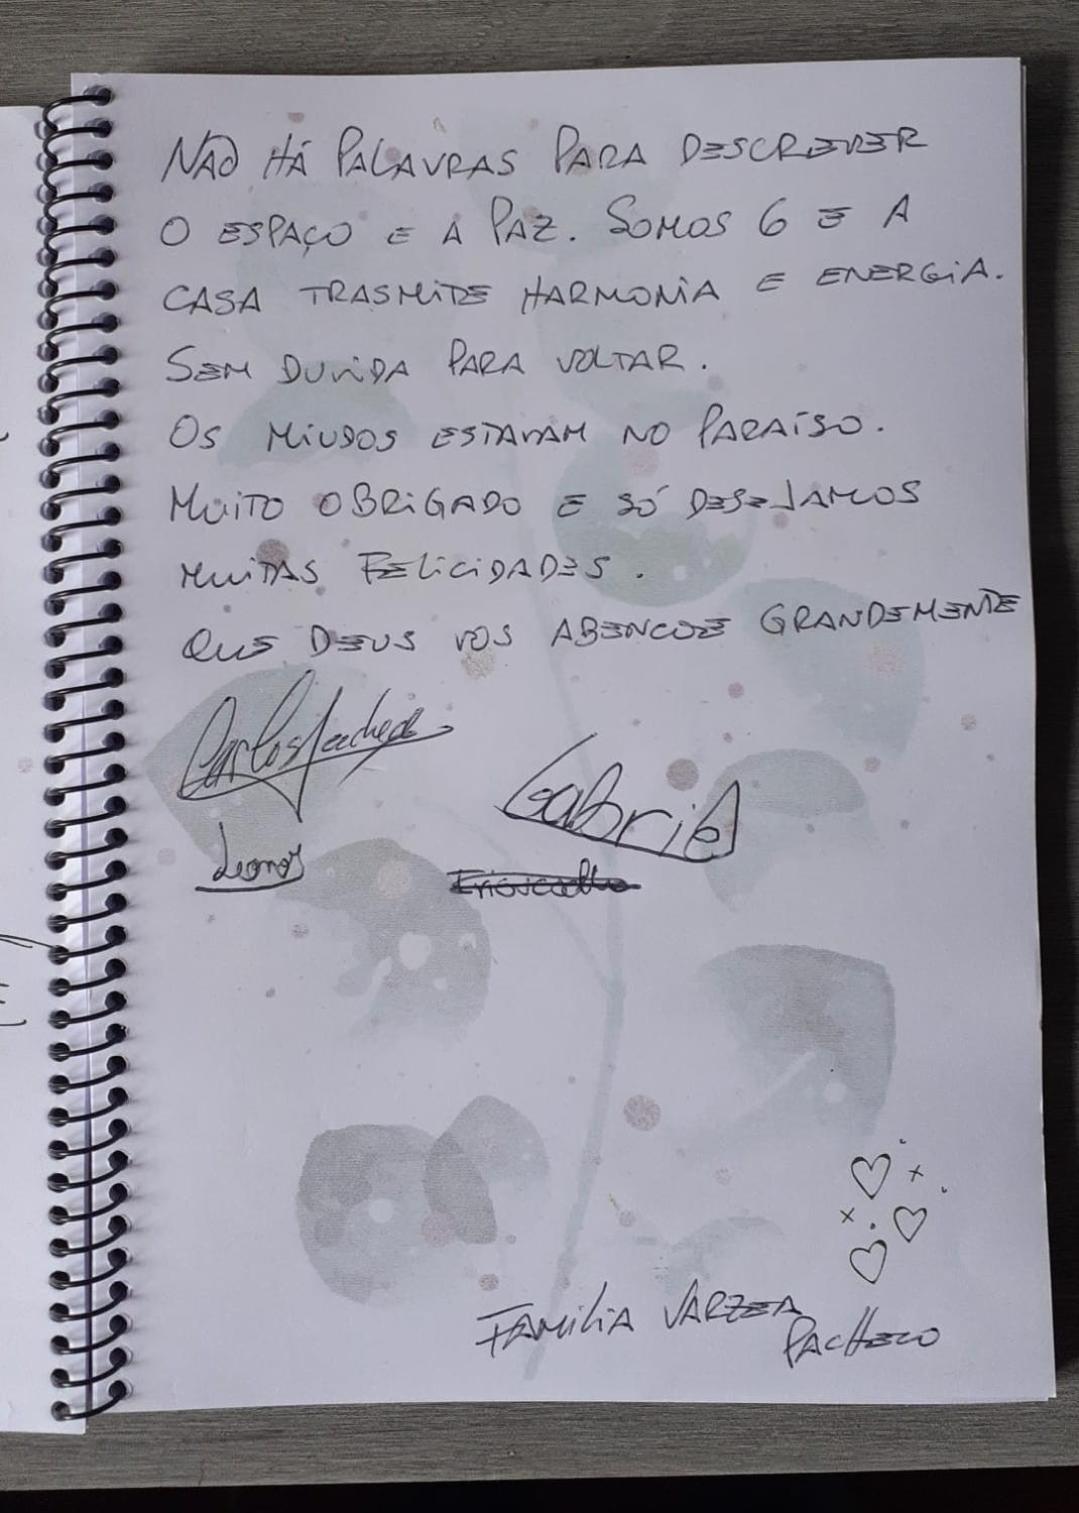 NÃO HÁ PALAVRAS PARA DESCREVER
O ESPAÇO E A PAZ. SOMOS 6 E A
CASA TRASMITE HARMONIA E ENERGIA.
SEM DUVIDA PARA VOLTAR.
OS MIUDOS ESTAVAM NO PARAÍSO.
MUITO OBRIGADO E SÓ DESEJAMOS
MUITAS FELICIDADES.
QUE DEUS VOS ABENCOE GRANDEMENTE
Carlos Pacheco
Gabriel
Leonor
FAMILIA VARZEA
PACHECO